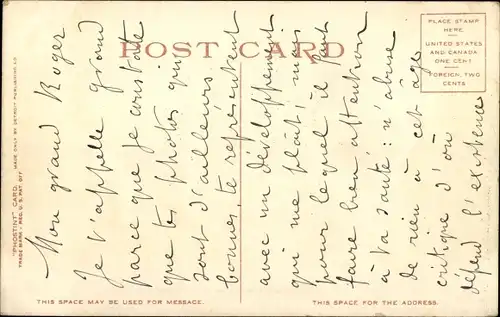 POST CARD
PLACE STAMP
HERE
UNITED STATES
AND CANADA
ONE CENT
FOREIGN, TWO
CENTS
"PHOSTINT" CARD. MADE ONLY BY DETROIT PUBLISHING CO.
TRADE MARK - REG. U.S. PAT. OFF.
Mon grand Roger
Je t'appelle grand
parce que je constate
que tes photos qui
sont d'ailleurs
bonnes, te représentent
avec un développement
qui me plaît; mais
pour lequel il faut
faire bien attention
à ta santé: n'abuse
de rien à cet âge
critique d'où
dépend l'existence
THIS SPACE MAY BE USED FOR MESSAGE.
THIS SPACE FOR THE ADDRESS.